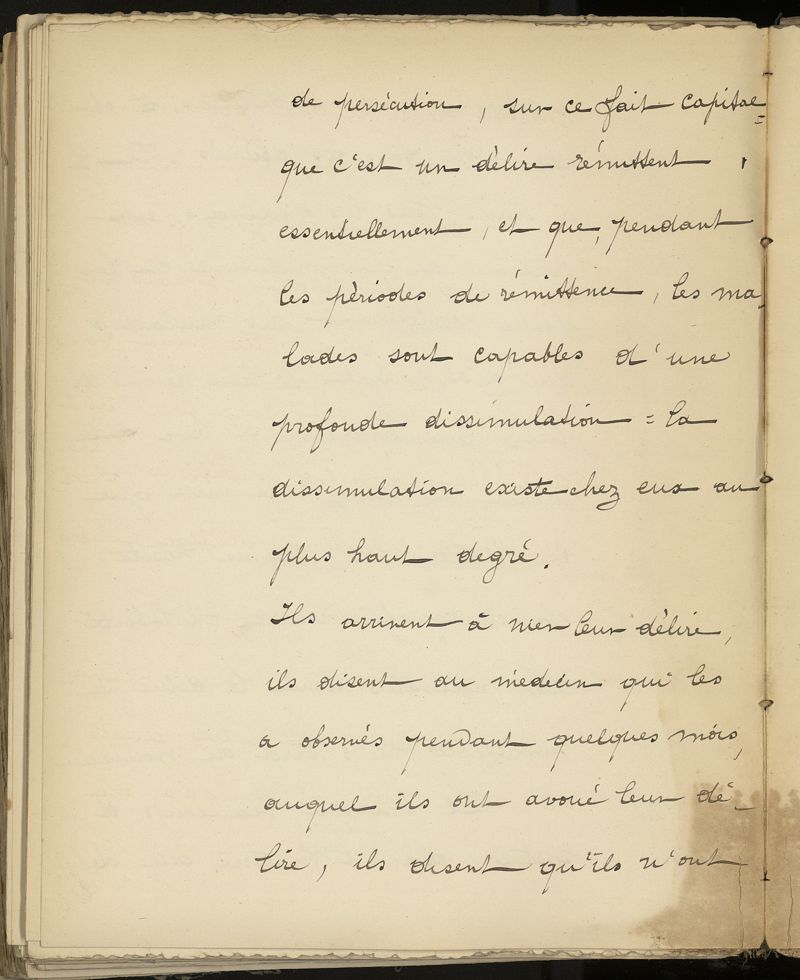 de persécution, sur ce fait capital =
que c'est un délire rémittent,
essentiellement, et que, pendant
les périodes de rémittence, les ma-
lades sont capables d'une
profonde dissimulation = la
dissimulation existe chez eux au
plus haut degré.
Ils arrivent à nier leur délire,
ils disent au médecin qui les
a observés pendant quelques mois,
auquel ils ont avoué leur dé-
lire, ils disent qu'ils n'ont